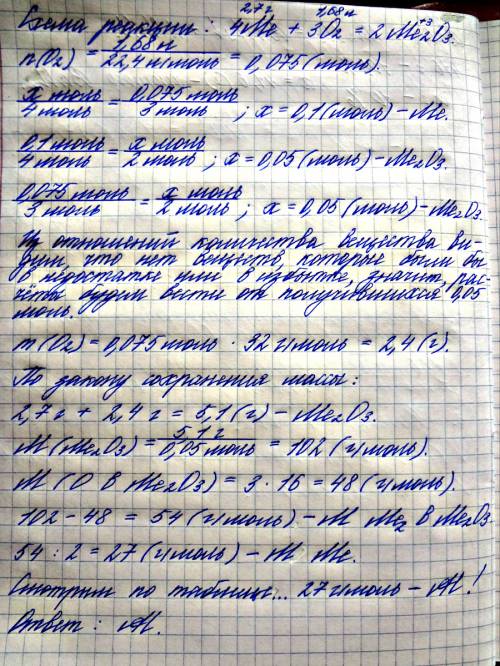 2,7 г 1,68 л
Схема реакции: 4Me + 3O₂ = 2Me₂⁺³O₃.
n(O₂) = 1,68 л / 22,4 л/моль = 0,075 (моль).
x моль / 4 моль = 0,075 моль / 3 моль ; x = 0,1 (моль) – Me.
0,1 моль / 4 моль = x моль / 2 моль ; x = 0,05 (моль) – Me₂O₃.
0,075 моль / 3 моль = x моль / 2 моль ; x = 0,05 (моль) – Me₂O₃.
Из отношений количества вещества ви-
дим, что нет веществ, которые были бы
в недостатке или в избытке, значит, рас-
чёты будем вести от получившихся 0,05
моль.
m(O₂) = 0,075 моль · 32 г/моль = 2,4 (г).
По закону сохранения массы:
2,7 г + 2,4 г = 5,1 (г) – Me₂O₃.
M(Me₂O₃) = 5,1 г / 0,05 моль = 102 (г/моль).
M(O в Me₂O₃) = 3 · 16 = 48 (г/моль).
102 – 48 = 54 (г/моль) – M Me₂ в Me₂O₃
54 : 2 = 27 (г/моль) – M Me.
Смотрим по таблице... 27 г/моль – Al!
Ответ: Al.